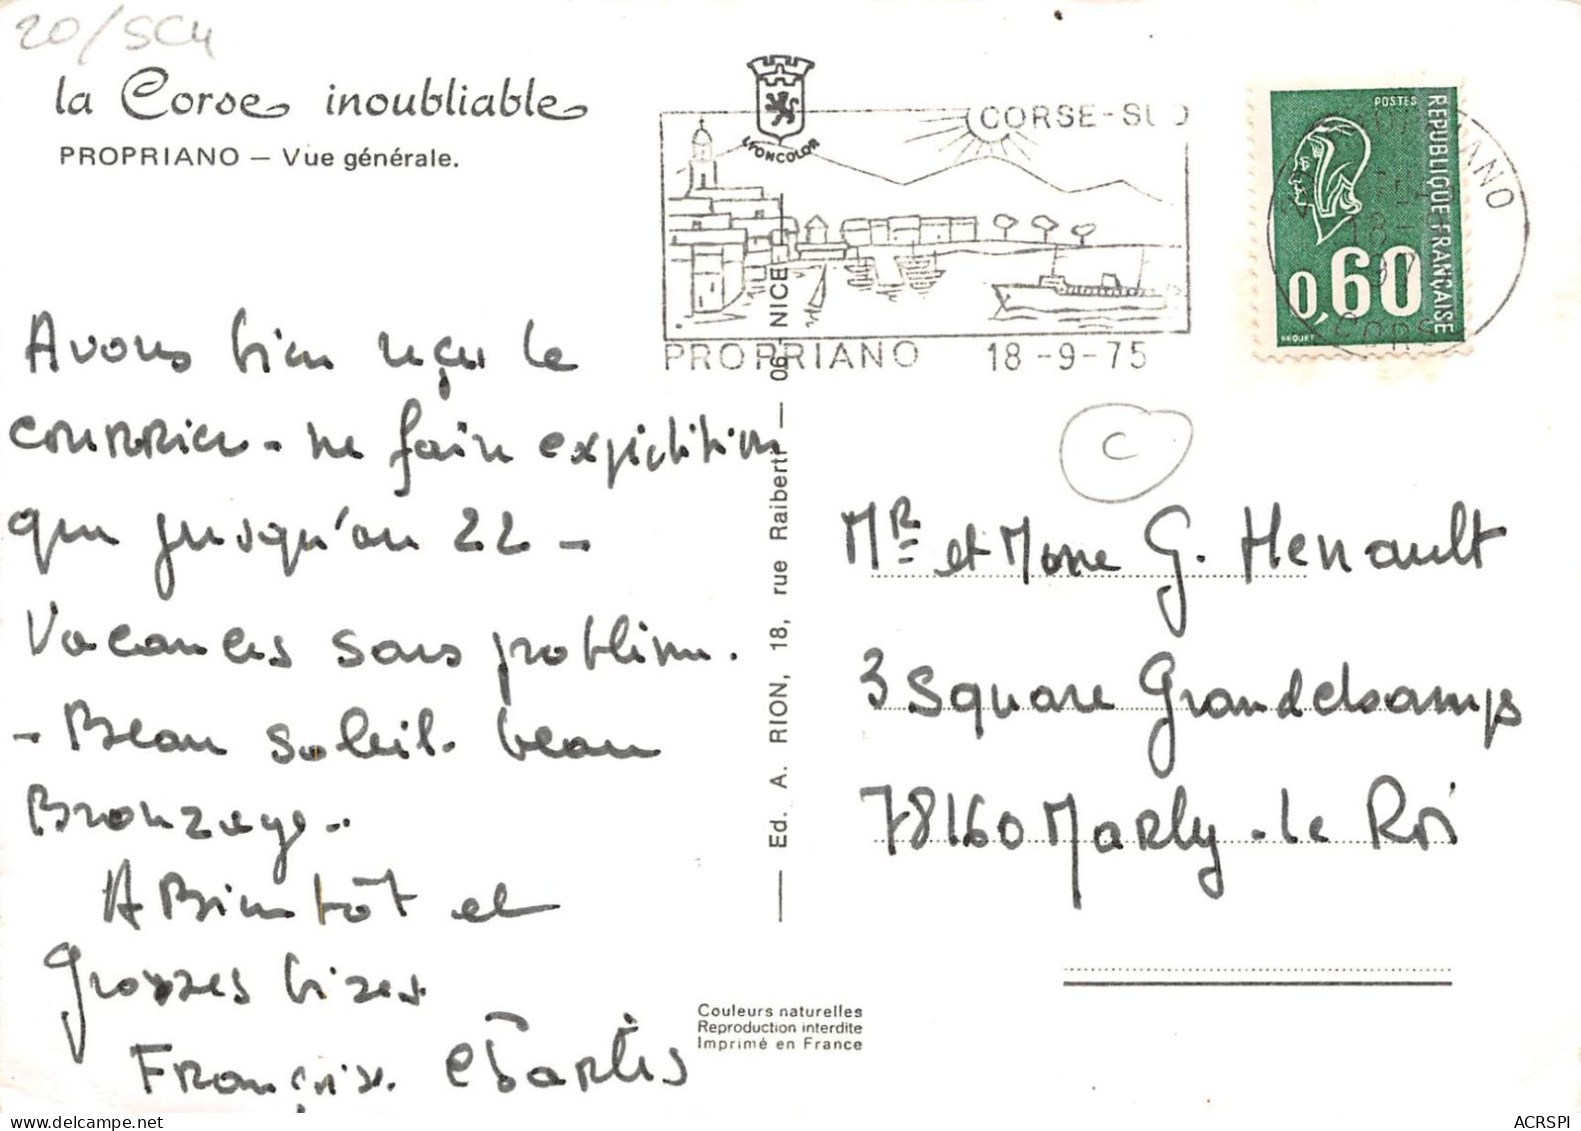 20/SC4
la Corse inoubliable
PROPRIANO — Vue générale.
LYONCOLOR
CORSE-SUD
PROPRIANO 18-9-75
POSTES
REPUBLIQUE FRANÇAISE
0,60
BEQUET
Avons bien reçu le
courrier - ne faire expédition
que jusqu'au 22 -
Vacances sans problème.
- Beau soleil. beau
Bronzage..
A Bientôt et
grosses bises
Françoise. Charles
— Ed. A. RION, 18, rue Raiberti — 06 - NICE
C
MR et Mme G. Henault
3 Square Grandchamps
78160 Marly-le Roi
Couleurs naturelles
Reproduction interdite
Imprimé en France
ACRSPI